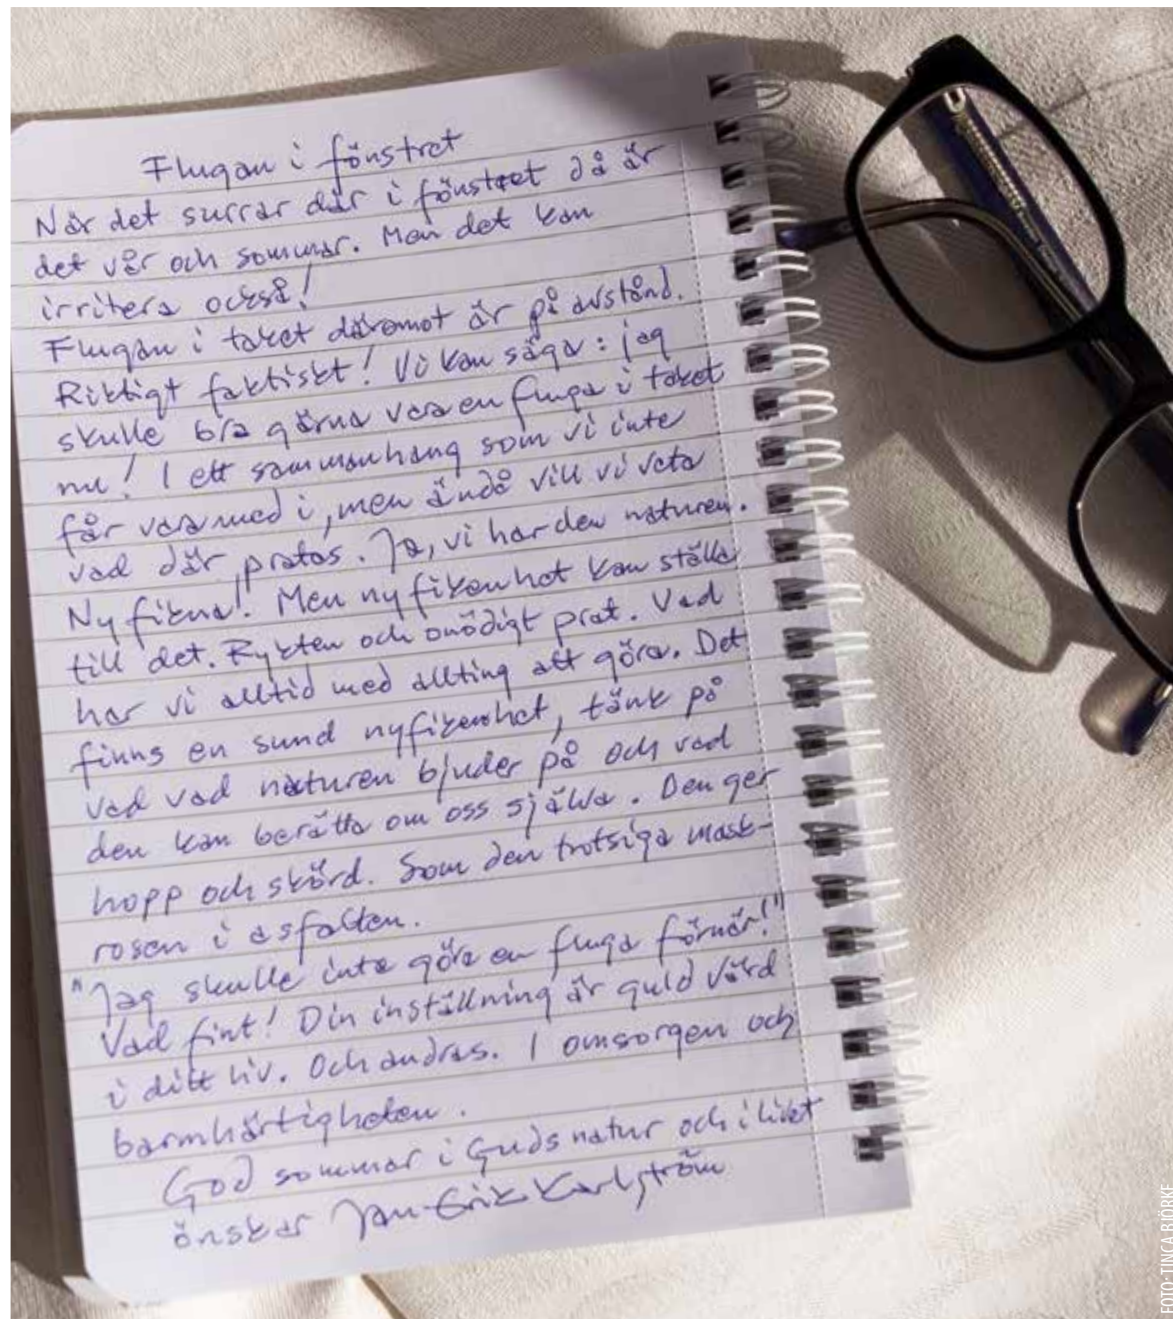 Flugan i fönstret
När det surrar där i fönstret då är
det vår och sommar. Men det kan
irritera också!
Flugan i taket däremot är på avstånd.
Riktigt faktiskt! Vi kan säga: jag
skulle bra gärna vara en fluga i taket
nu! I ett sammanhang som vi inte
får vara med i, men ändå vill vi veta
vad där pratas. Ja, vi har den naturen.
Nyfikna! Men nyfikenhet kan ställa
till det. Rykten och onödigt prat. Vad
har vi alltid med allting att göra. Det
finns en sund nyfikenhet, tänk på
vad vad naturen bjuder på och vad
den kan berätta om oss själva. Den ger
hopp och skörd. Som den trotsiga mask-
rosen i asfalten.
"Jag skulle inte göra en fluga förnär!"
Vad fint! Din inställning är guld värd
i ditt liv. Och andras. I omsorgen och
barmhärtigheten.
God sommar i Guds natur och i livet
önskar Jan-Erik Karlström
FOTO: TINCA BJÖRKE